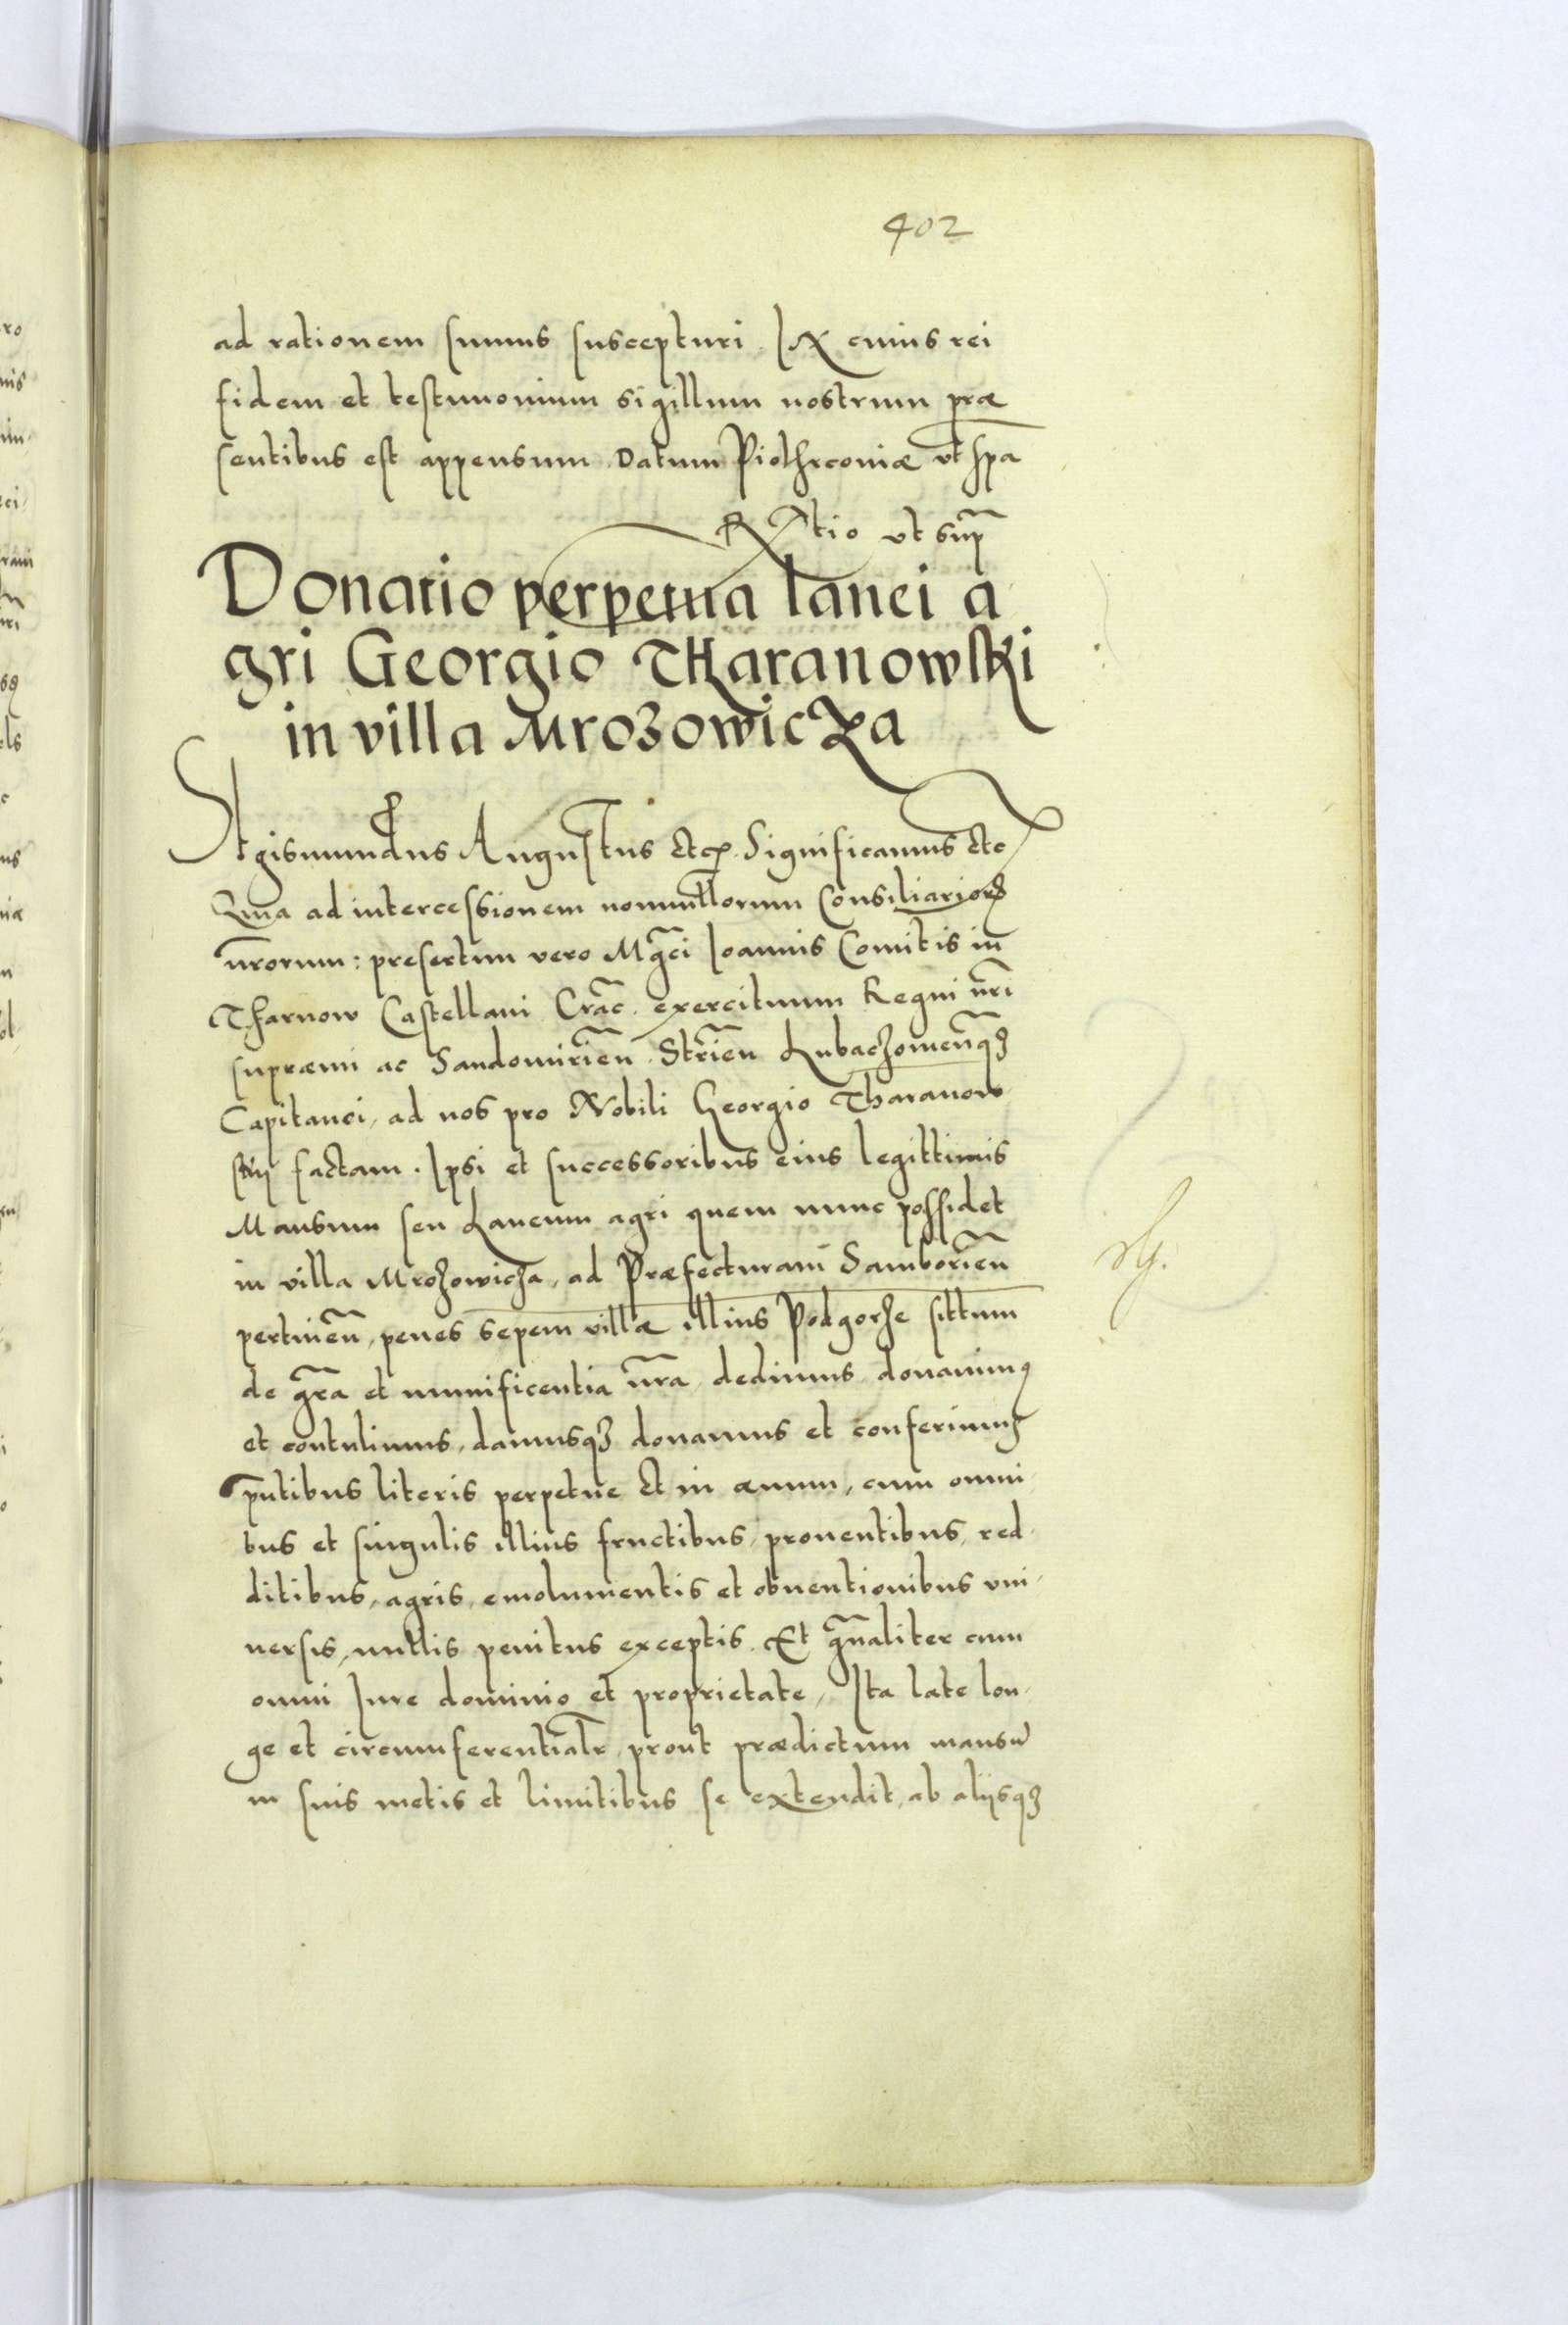 402
ad rationem sumus suscepturi. In cuius rei
fidem et testimonium sigillum nostrum præ
sentibus est appensum. Datum Piothrconiæ vt spa
Rtio vt sup̃
Donatio perpetua lanei a
gri Georgio Tharanowski
in villa Mrozowicza
Sigismundus Augustus etc. Significamus etc
Quia ad intercessionem nonnullorum Consiliarioꝝ
nr̃orum: presertim vero Mg̃ci Ioannis Comitis in
Tharnow Castellani Crac̃. exercituum Regni nr̃i
supræmi ac Sandomirień. Strień Lubaczowieńqꝫ
Capitanei, ad nos pro Nobili Georgio Tharanow
skij factam. Ipsi et successoribus eius legittimis
Mansum seu Laneum agri quem nunc possidet
in villa Mrozowicza, ad Præfecturam Samborień
pertineñ, penes sepem villæ illius Podgorze sittum
de gr̃a et munificentia nr̃a dedimus donauimꝰ
et contulimus, damusqꝫ donamus et conferimus
pñtibus literis perpetue et in æuum, cum omni
bus et singulis illius fructibus, prouentibus, red
ditibus, agris, emolumentis et obuentionibus vni
uersis, nullis penitus exceptis. Et gñaliter cum
omni Iure dominio et proprietate, Ita late lon
ge et circumferentialr̃ prout prædictum mansũ
in suis metis et limitibus se extendit, ab aliisqꝫ